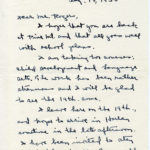 Aug. 19, 1930
Dear Mr. Rogers,
I hope that you are back
at and that all goes well
with school plans.
I am taking two courses:
Child development and Language
arts. The work has been rather
strenuous and I will be glad
to see the 19th come.
I leave here on the 19th,
and hope to arrive in
sometime in the late afternoon.
I have been invited to stay